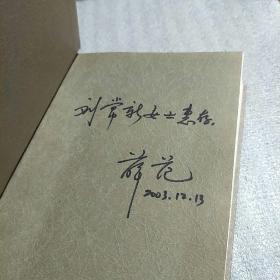 刘常新女士惠存
薛范
2003.12.13